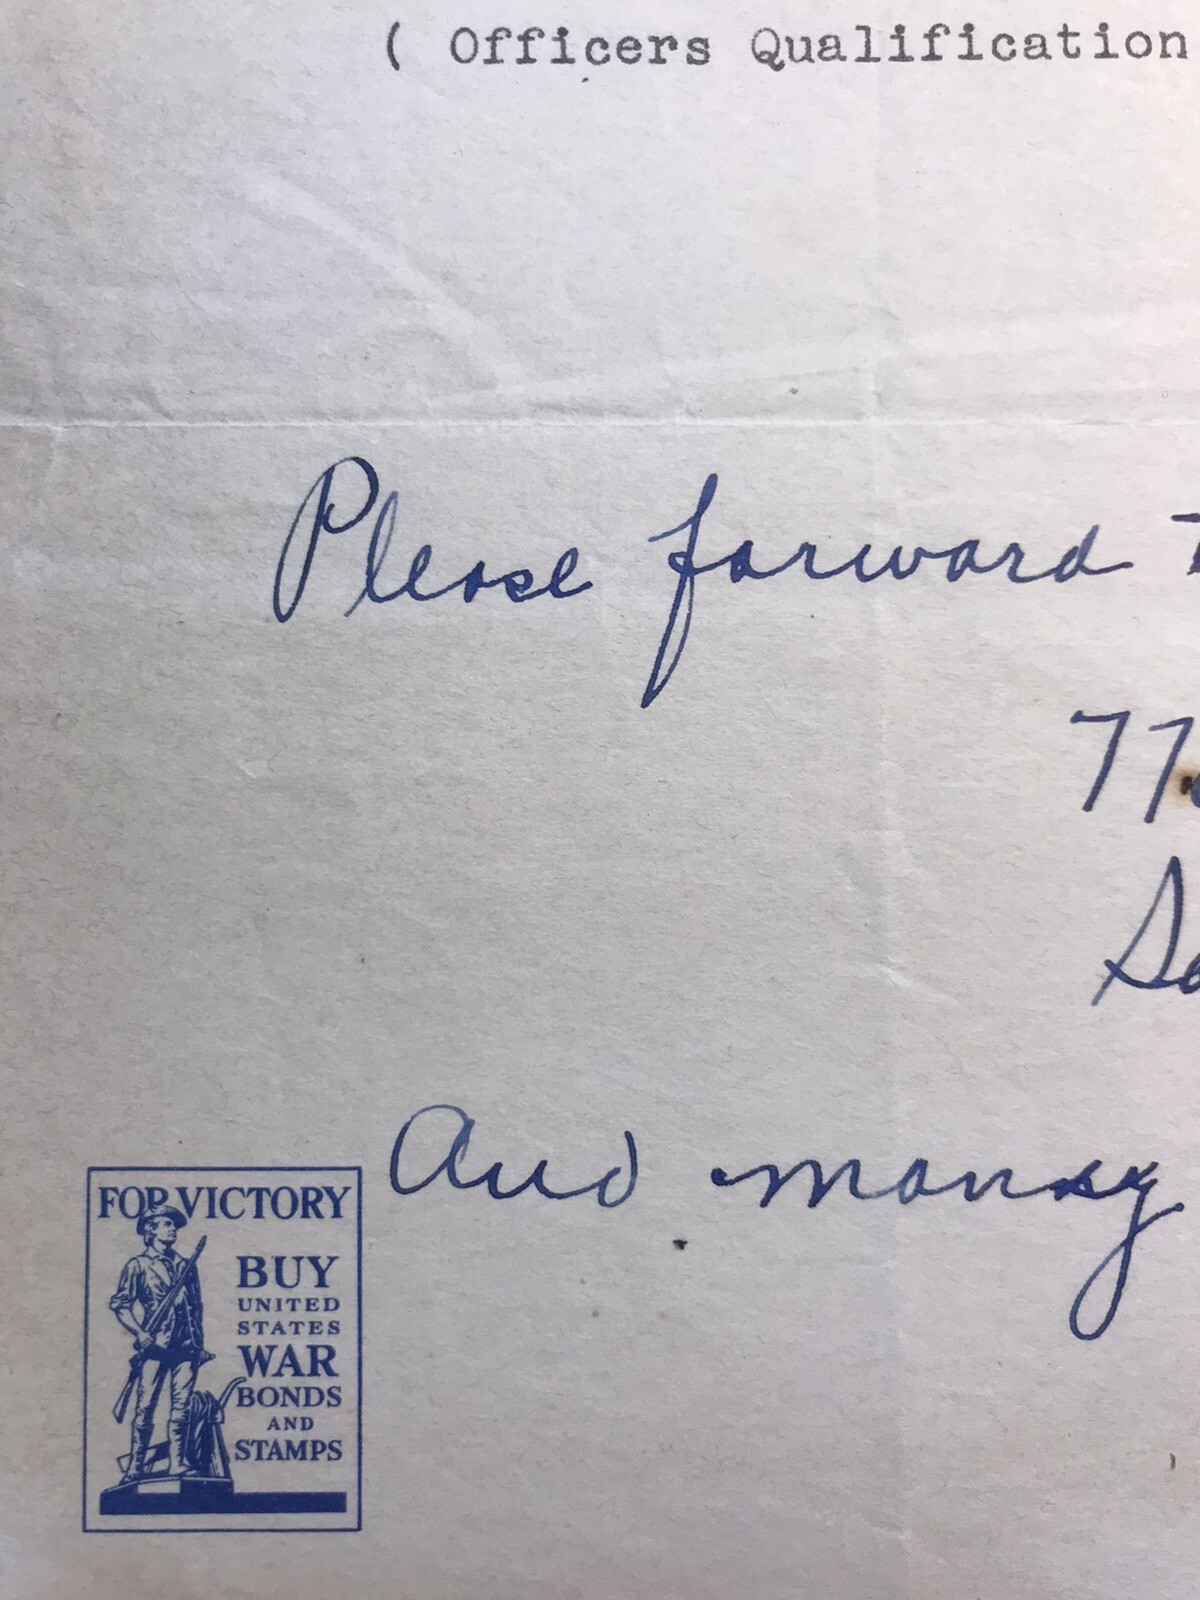 ( Officers Qualification
Please forward
77
And money
FOR VICTORY
BUY
UNITED
STATES
WAR
BONDS
AND
STAMPS